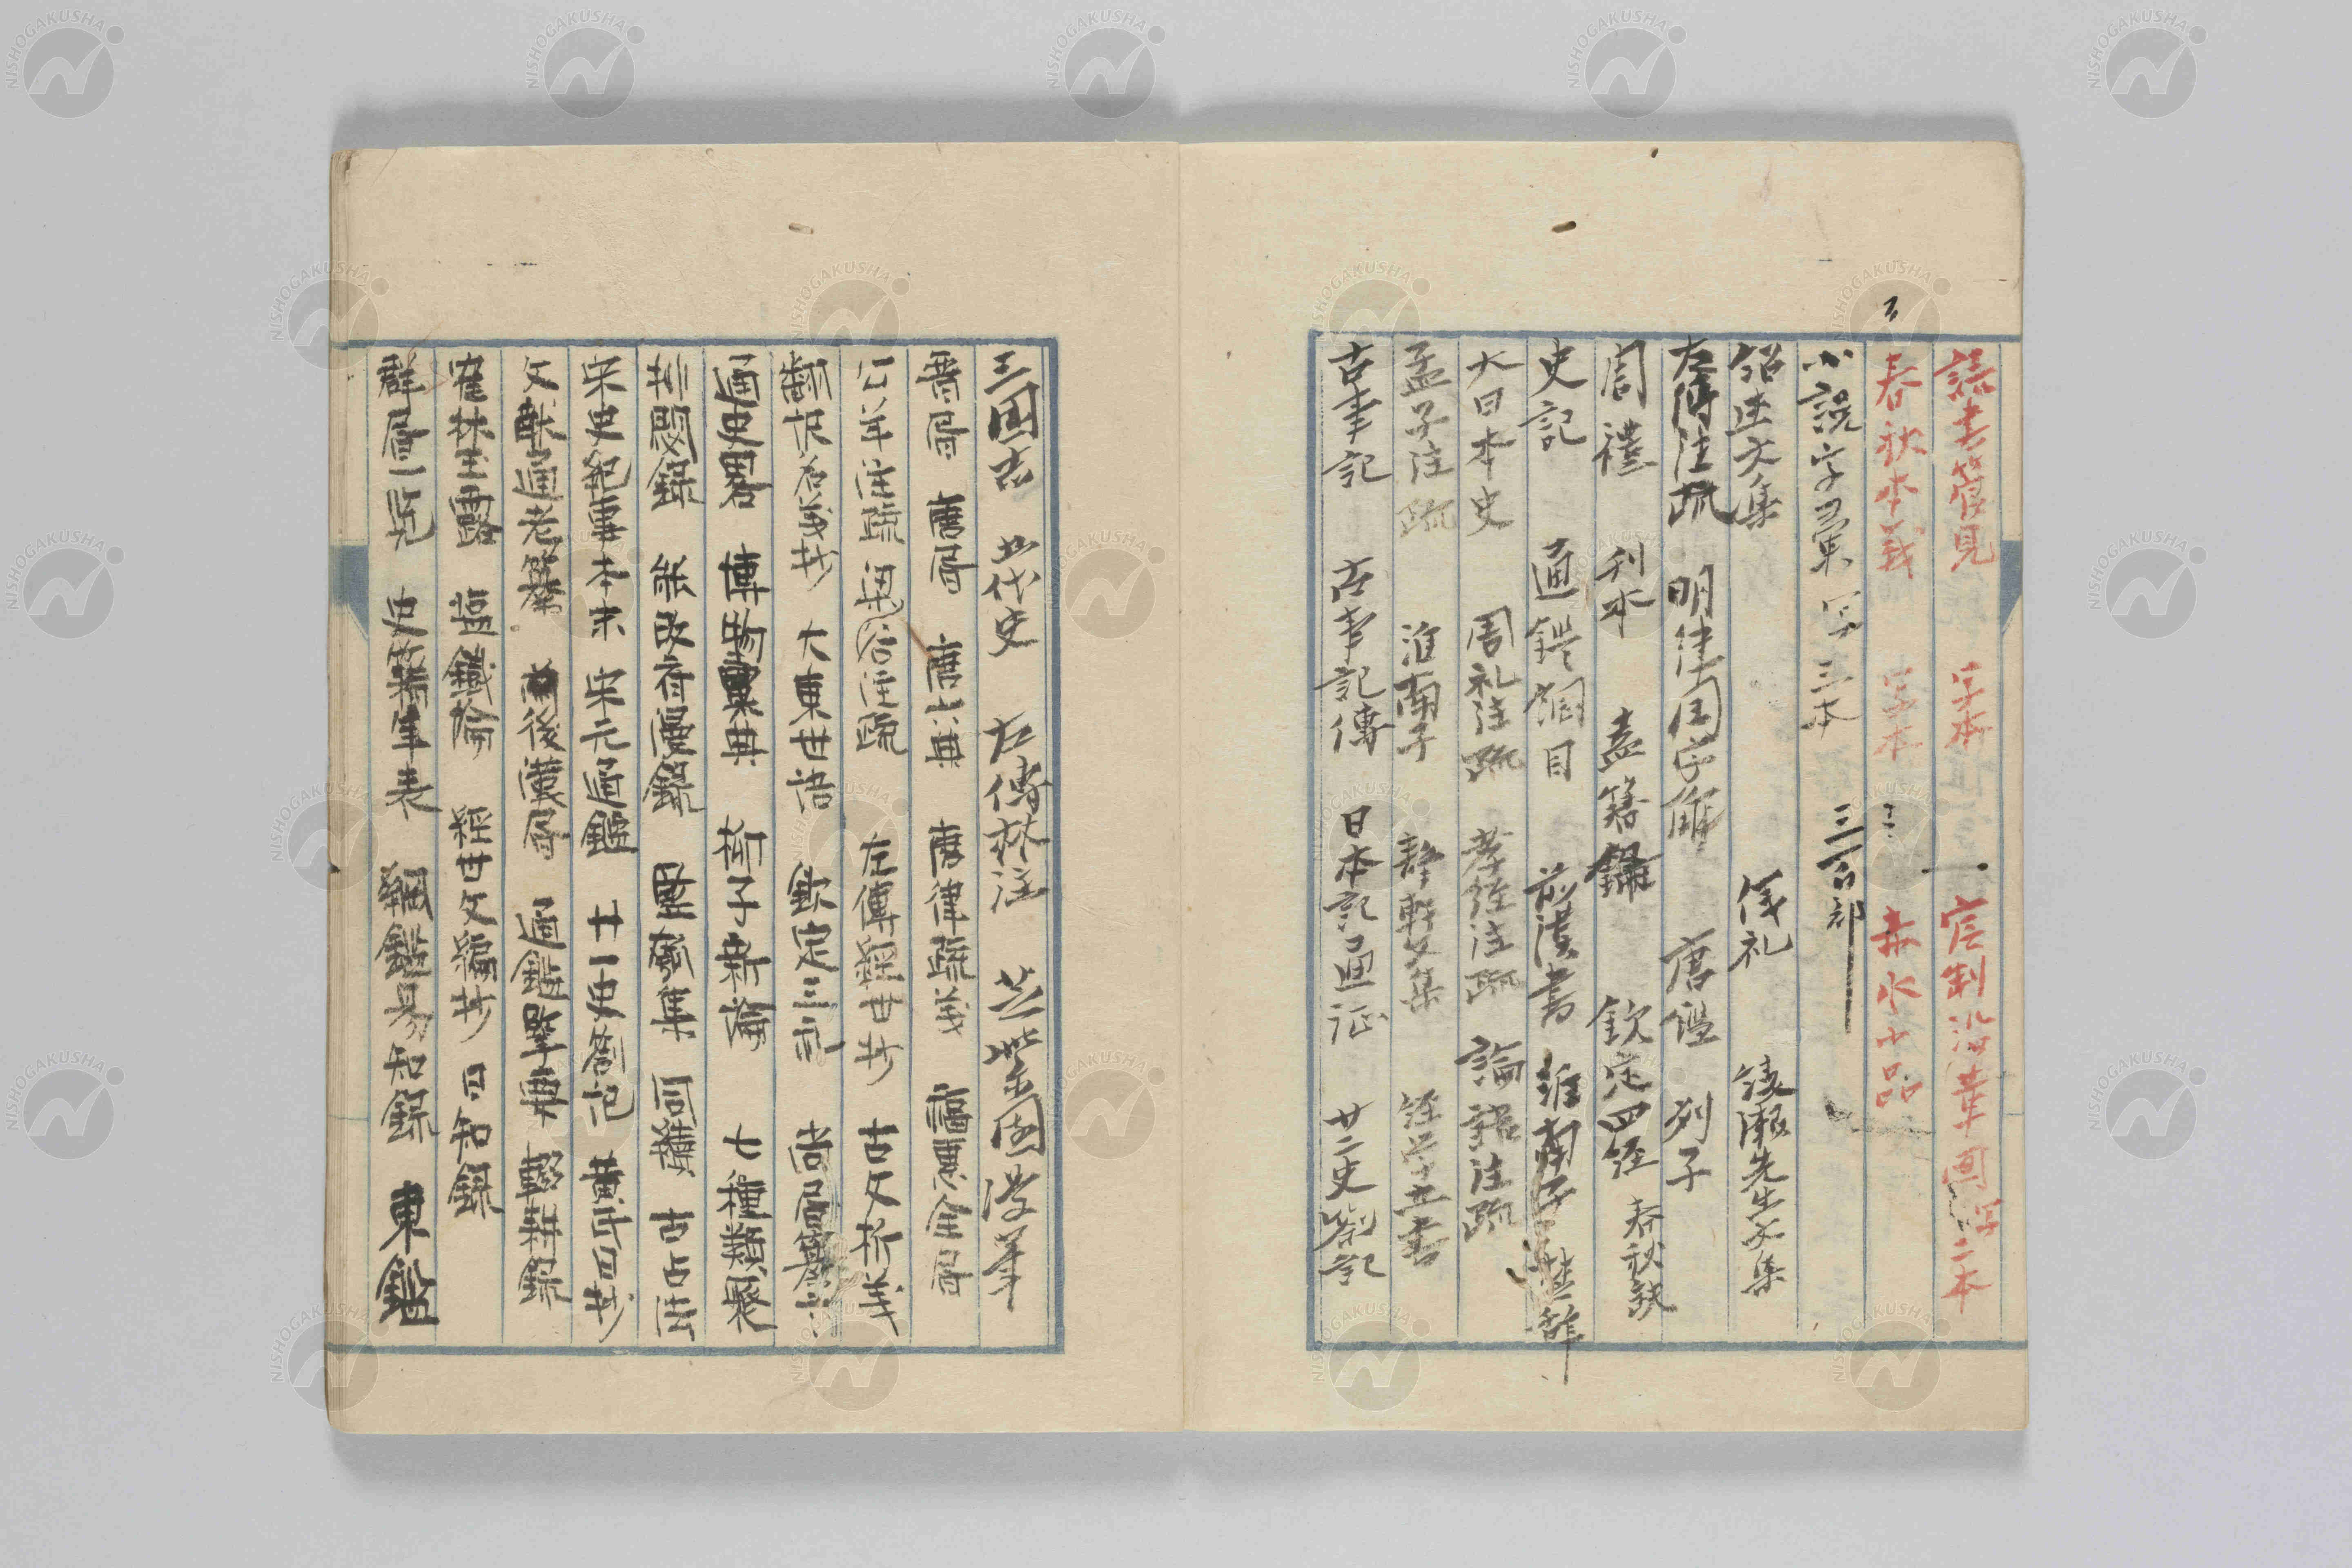 読書管見 写本 一 官制沿革図 写二本
春秋本義 写本 赤水小品
小説字彙 写三本 三百部
紹述文集 儀礼 淡淵先生文集
左傳注疏 明律国字解 唐鑑 列子
周禮 刊本 盍簪録 欽定四経 春秋説
史記 通鑑綱目 前漢書 淮南子 楚辞
大日本史 周礼注疏 孝経注疏 論語注疏
孟子注疏 淮南子 静軒文集 経学五書
古事記 古事記傳 日本記通証 廿二史箚記
三國志 五代史 左傳林注 芝山國漫筆
晋書 唐書 唐六典 唐律疏義 福惠全書
公羊注疏 梁谷注疏 左傳經世抄 古文析義
翻訳名義抄 大東世語 欽定三礼 尚書纂
通史畧 博物彙典 柳子新論 七種類聚
排悶錄 熙朝集 同續 古占法
宋史紀事本末 宋元通鑑 廿一史箚記 黄氏日抄
文献通考纂 前後漢書 通鑑擥要 輟耕錄
寉林玉露 塩鐵論 經世文編抄 日知錄
群書一覧 史籍年表 綱鑑易知錄 東鑑
NISHOGAKUSHA